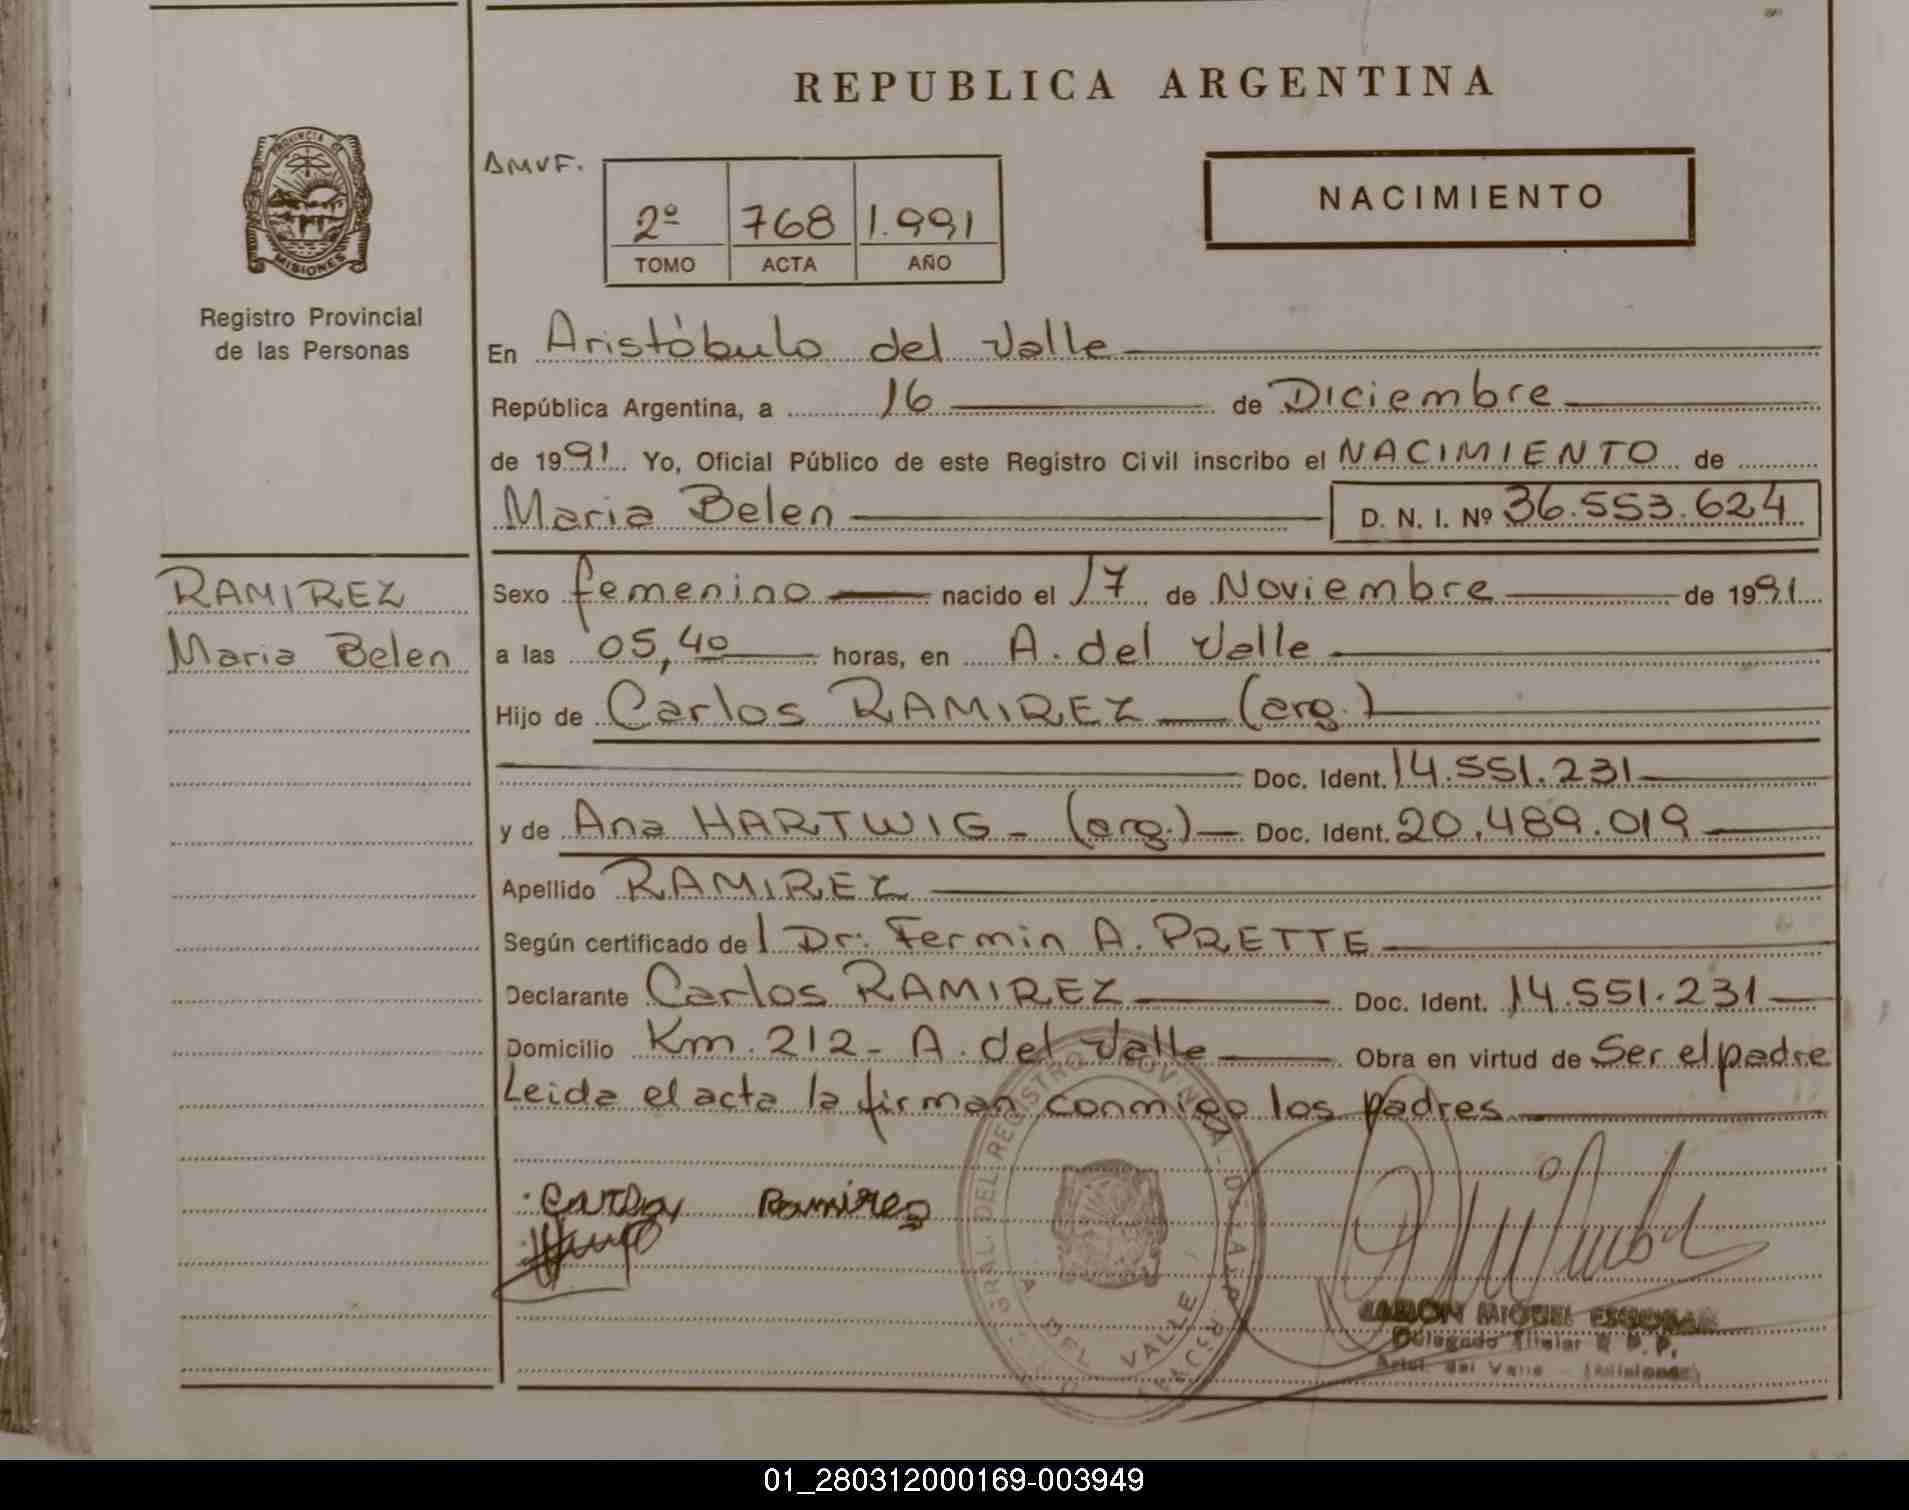 REPUBLICA ARGENTINA
PROVINCIA DE
MISIONES
Registro Provincial
de las Personas
DMVF.
2º 768 1.991
TOMO ACTA AÑO
NACIMIENTO
En Aristóbulo del Valle
República Argentina, a 16 de Diciembre
de 1991. Yo, Oficial Público de este Registro Civil inscribo el NACIMIENTO de
Maria Belen D. N. I. Nº 36.553.624
RAMIREZ
Maria Belen
Sexo femenino nacido el 17 de Noviembre de 1991
a las 05,40 horas, en A. del Valle
Hijo de Carlos RAMIREZ (arg.)
Doc. Ident. 14.551.231
y de Ana HARTWIG - (arg.) Doc. Ident. 20.489.019
Apellido RAMIREZ
Según certificado del Dr: Fermin A. PRETTE
Declarante Carlos RAMIREZ Doc. Ident. 14.551.231
Domicilio Km. 212 - A. del Valle Obra en virtud de Ser el padre
Leida el acta la firman conmigo los padres
Carlos Ramirez
GRAL. DEL REGISTRO PROVINCIAL DE LAS PERSONAS
A. DEL VALLE
MIGUEL ESCOBAR
Delegado Titular R. P. P.
Arist. del Valle - (Misiones)
01_280312000169-003949